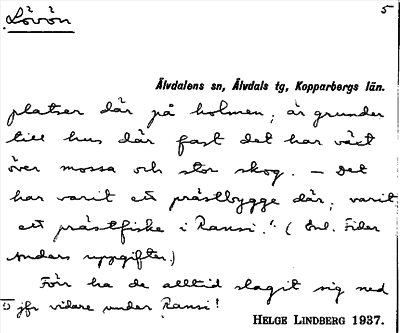 Lövön 5
Älvdalens sn, Älvdals tg, Kopparbergs län.
platser där på holmen; är grunder
till hus där fast det har växt
över mossa och stor skog. — Det
har varit ett prästbygge där; varit
ett prästfiske i Ransi." (Enl. Fider
Anders uppgifter.)
Förr ha de alltid slagit sig ned
1) jfr vidare under Ransi!
HELGE LINDBERG 1937.